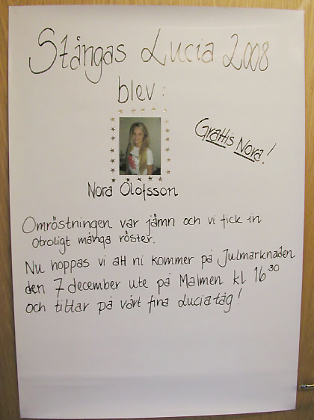 Stångas Lucia 2008
blev:
Grattis Nora!
Nora Olofsson
Omröstningen var jämn och vi fick in
otroligt många röster.
Nu hoppas vi att ni kommer på Julmarknaden
den 7 december ute på Malmen kl 16³⁰
och tittar på vårt fina Luciatåg!